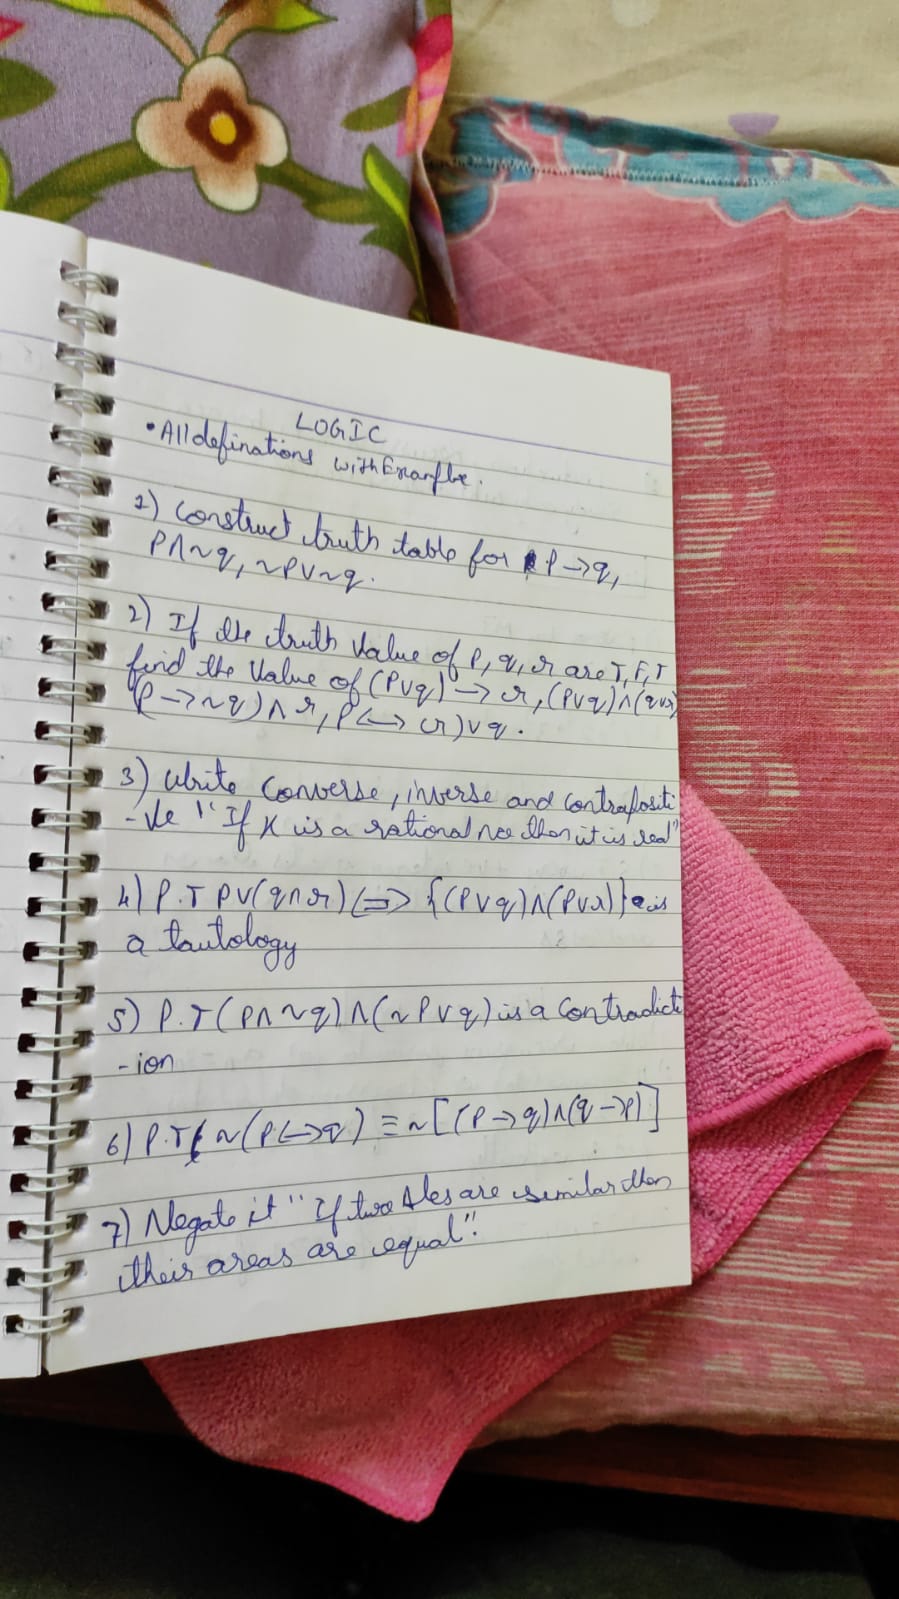 LOGIC
• All definations with Examfle.
1) Construct truth table for P→q,
P∧~q, ~P∨~q.
2) If the truth Value of P, q, r are T, F, T
find the Value of (P∨q)→r, (P∨q)∧(q∨r)
(P→~q)∧r, P(↔r)∨q.
3) Write Converse, inverse and Contrapositi
-ve "If x is a rational no then it is real"
4) P.T P∨(q∧r)⇔{(P∨q)∧(P∨r)} is
a tautology
5) P.T (P∧~q)∧(~P∨q) is a Contradict
-ion
6) P.T ~(P↔q) ≡ ~[(P→q)∧(q→P)]
7) Negate it "If two Δles are similar then
their areas are equal".